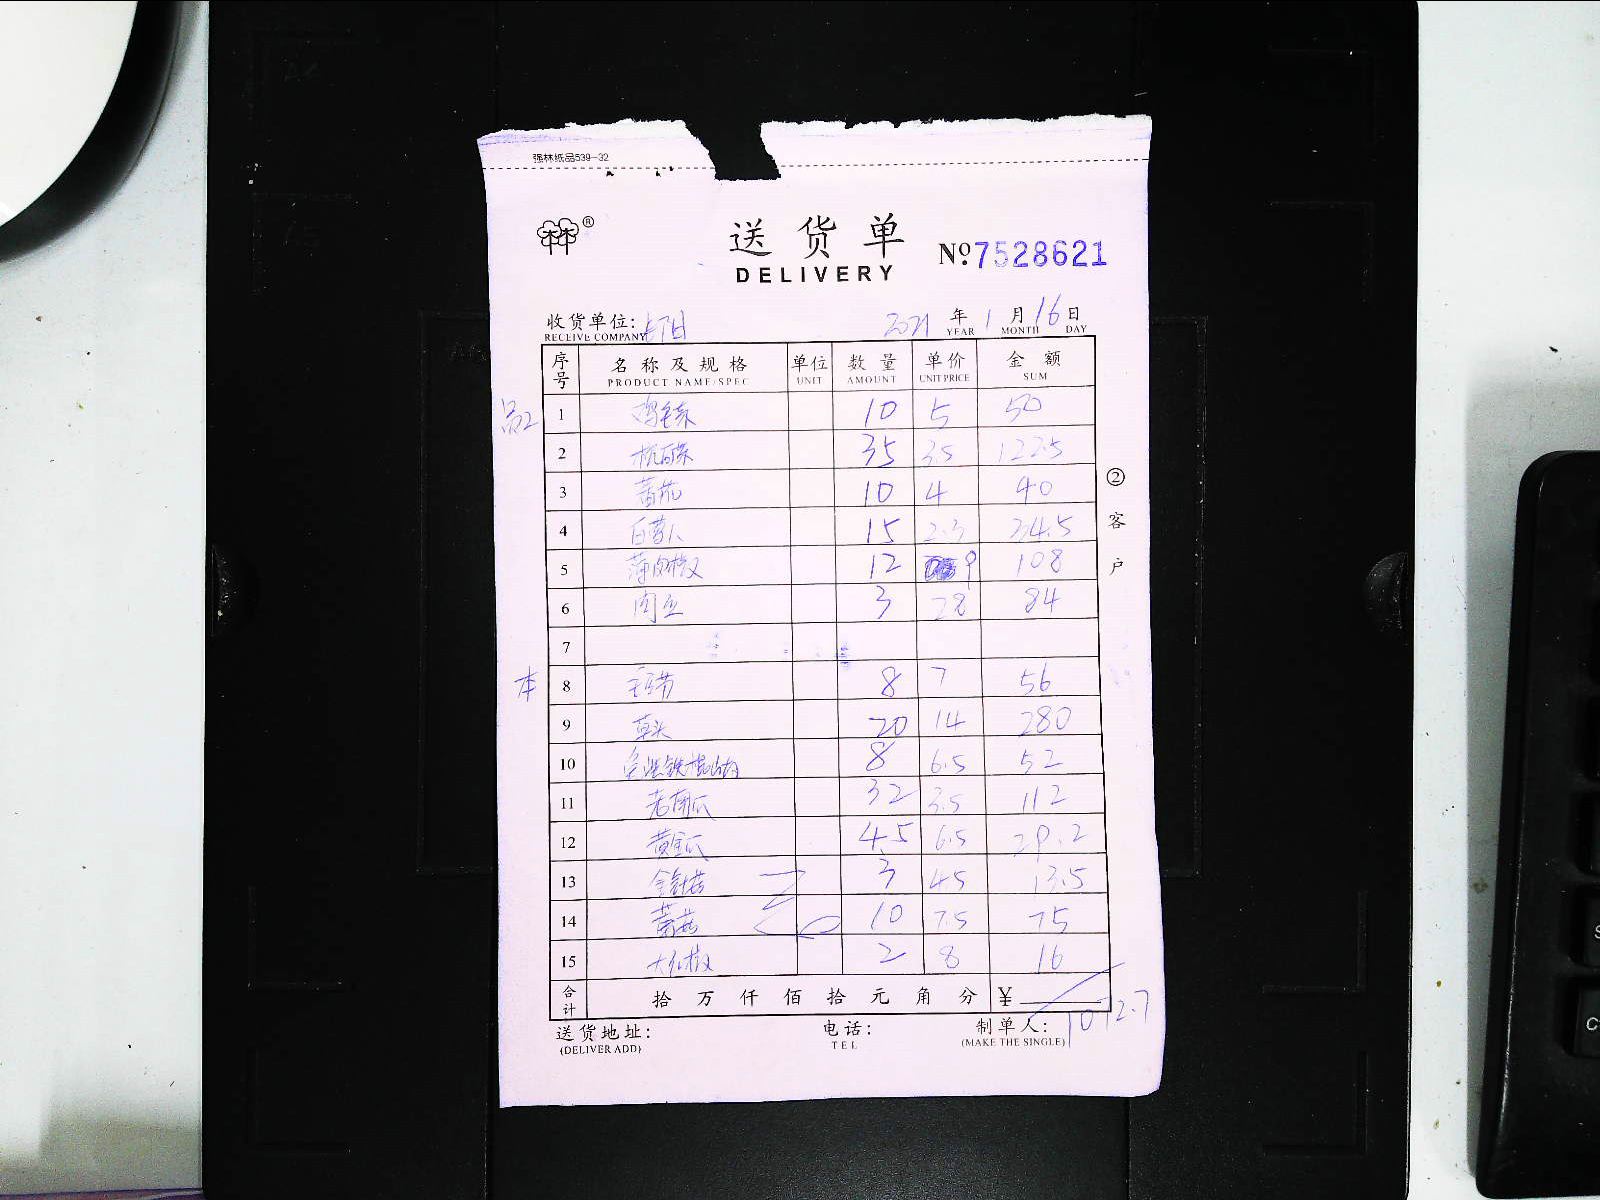 强林纸品539-32
®
送货单
DELIVERY
Nº.7528621
收货单位:
RECEIVE COMPANY
2021 年 1 月 16 日
YEAR MONTH DAY
序号 名称及规格 单位 数量 单价 金额
PRODUCT NAME/SPEC UNIT AMOUNT UNIT PRICE SUM
1 鸡毛菜 10 5 50
2 杭白菜 35 3.5 122.5
3 蕃茄 10 4 40
4 白萝卜 15 2.3 34.5
5 薄肉椒 12 9 108
6 3 28 84
7
本 8 毛豆节 8 7 56
9 草头 20 14 280
10 8 6.5 52
11 老南瓜 32 3.5 112
12 黄金瓜 4.5 6.5 29.2
13 金针菇 3 4.5 13.5
14 蘑菇 10 7.5 75
15 大红椒 2 8 16
合计 拾万仟佰拾元角分 ¥
1072.7
②客户
送货地址: 电话: 制单人:
(DELIVER ADD) TEL (MAKE THE SINGLE)